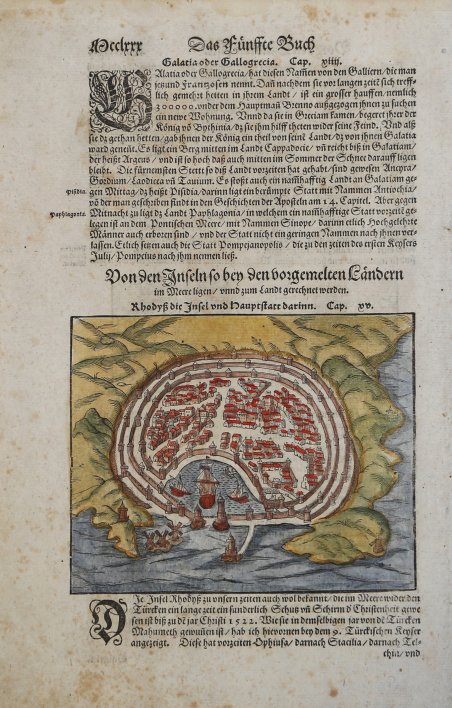 Mcclxxx Das Fünffte Buch
Galatia oder Gallogrecia. Cap. xiiij.
GAlatia oder Gallogrecia/ hat diesen Nam̃en von den Galliern/ die man
jetzund Frantzosen nennt. Dañ nachdem sie vor langen zeitẽ sich treff-
lich gemehrt hetten in jhrem Landt/ ist ein grosser hauffen/ nemlich
300000. vnder dem Hauptmañ Brenno außgezogen jhnen zu suchen
ein newe Wohnung. Vnnd da sie in Greciam kamen/ begeret jhrer der
König võ Bythinia/ dz sie jhm hilff theten wider seine Feind. Vnd alß
sie dz gethan hetten/ gab jhnen der König ein theil von seinẽ Landt/ dz von jhnen Galatia
ward geneñt. Es ligt ein Berg mitten im Landt Cappadocie/ vñ reicht biß in Galatiam/
der heißt Argeus/ vnd ist so hoch daß auch mitten im Sommer der Schnee darauff ligen
bleibt. Die fürnemsten Stett so diß Landt vorzeiten gehabt/ sind gewesen Ancyra/
Gordium/ Laodicea vñ Tauium. Es stoßt auch ein nam̃hafftig Landt an Galatiam ge-
pisidia. gen Mittag/ dz heißt Pisidia/ darinn ligt ein berümpte Statt mit Nammen Antiochia/
võ der man geschriben findt in den Geschichten der Apostelen am 14. Capitel. Aber gegen
Paphlagonia. Mitnacht zu ligt dz Landt Paphlagonia/ in welchem ein nam̃hafftige Statt vorzeitẽ ge-
legen ist an dem Pontischen Meere/ mit Nammen Sinope/ darinn etlich Hochgelehrte
Männer auch erboren sind/ vnd der Statt nicht ein geringen Nammen nach jhnen ver-
lassen. Etlich setzen auch die Statt Pompejanopolis/ die zu den zeiten des ersten Keysers
Julij/ Pompeius nach jhm nennen ließ.
Von den Inseln so bey den vorgemelten Ländern
im Meere ligen/ vnnd zum Landt gerechnet werden.
Rhodyß die Insel vnd Hauptstatt darinn. Cap. xv.
DIe Insel Rhodyß zu vnsern zeiten auch wol bekannt/ die im Meere wider den
Türcken ein lange zeit ein sunderlich Schutz vñ Schirm d' Christenheit gewe
sen ist biß zu dẽ jar Christi 1522. Wie sie in demselbigen jar von dẽ Türcken
Mahumeth gewuñen ist/ hab ich hievornen bey dem 9. Türckischen Keyser
angezeigt. Diese hat vorzeiten Ophiusa/ darnach Stacilia/ darnach Tel-
chia/ vnd